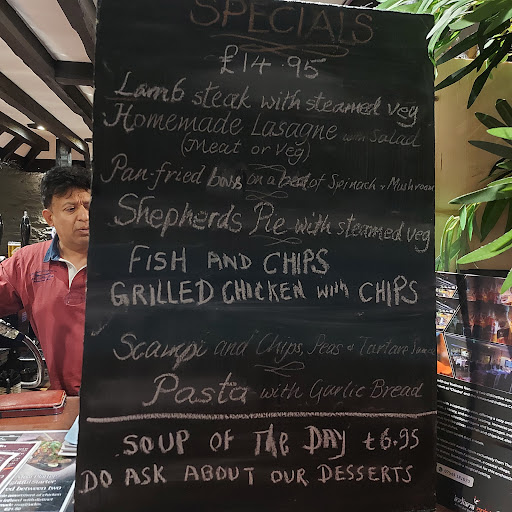 SPECIALS
£14.95
Lamb steak with steamed veg
Homemade Lasagne with Salad
(Meat or Veg)
Pan-fried bass on a bed of Spinach & Mushroom
Shepherds Pie with steamed veg
FISH AND CHIPS
GRILLED CHICKEN with CHIPS
Scampi and Chips, Peas & Tartare
Pasta with Garlic Bread
SOUP OF THE DAY £6.95
DO ASK ABOUT OUR DESSERTS